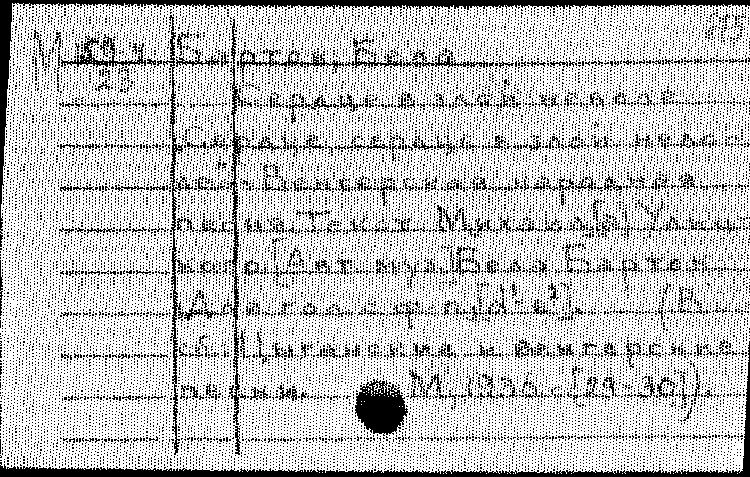 Барток, Бела
Сердце в злой неволе
"Сердце, сердце в злой нево-
ле". Венгерская народная
песня. Текст Михаила[!] Улиц-
кого. [Авт. муз.] Бела Барток
Для гол. с ф-п. [d¹-e²]. (В
сб. Цыганские и венгерские
песни. М, 1936. с. [29-30]).